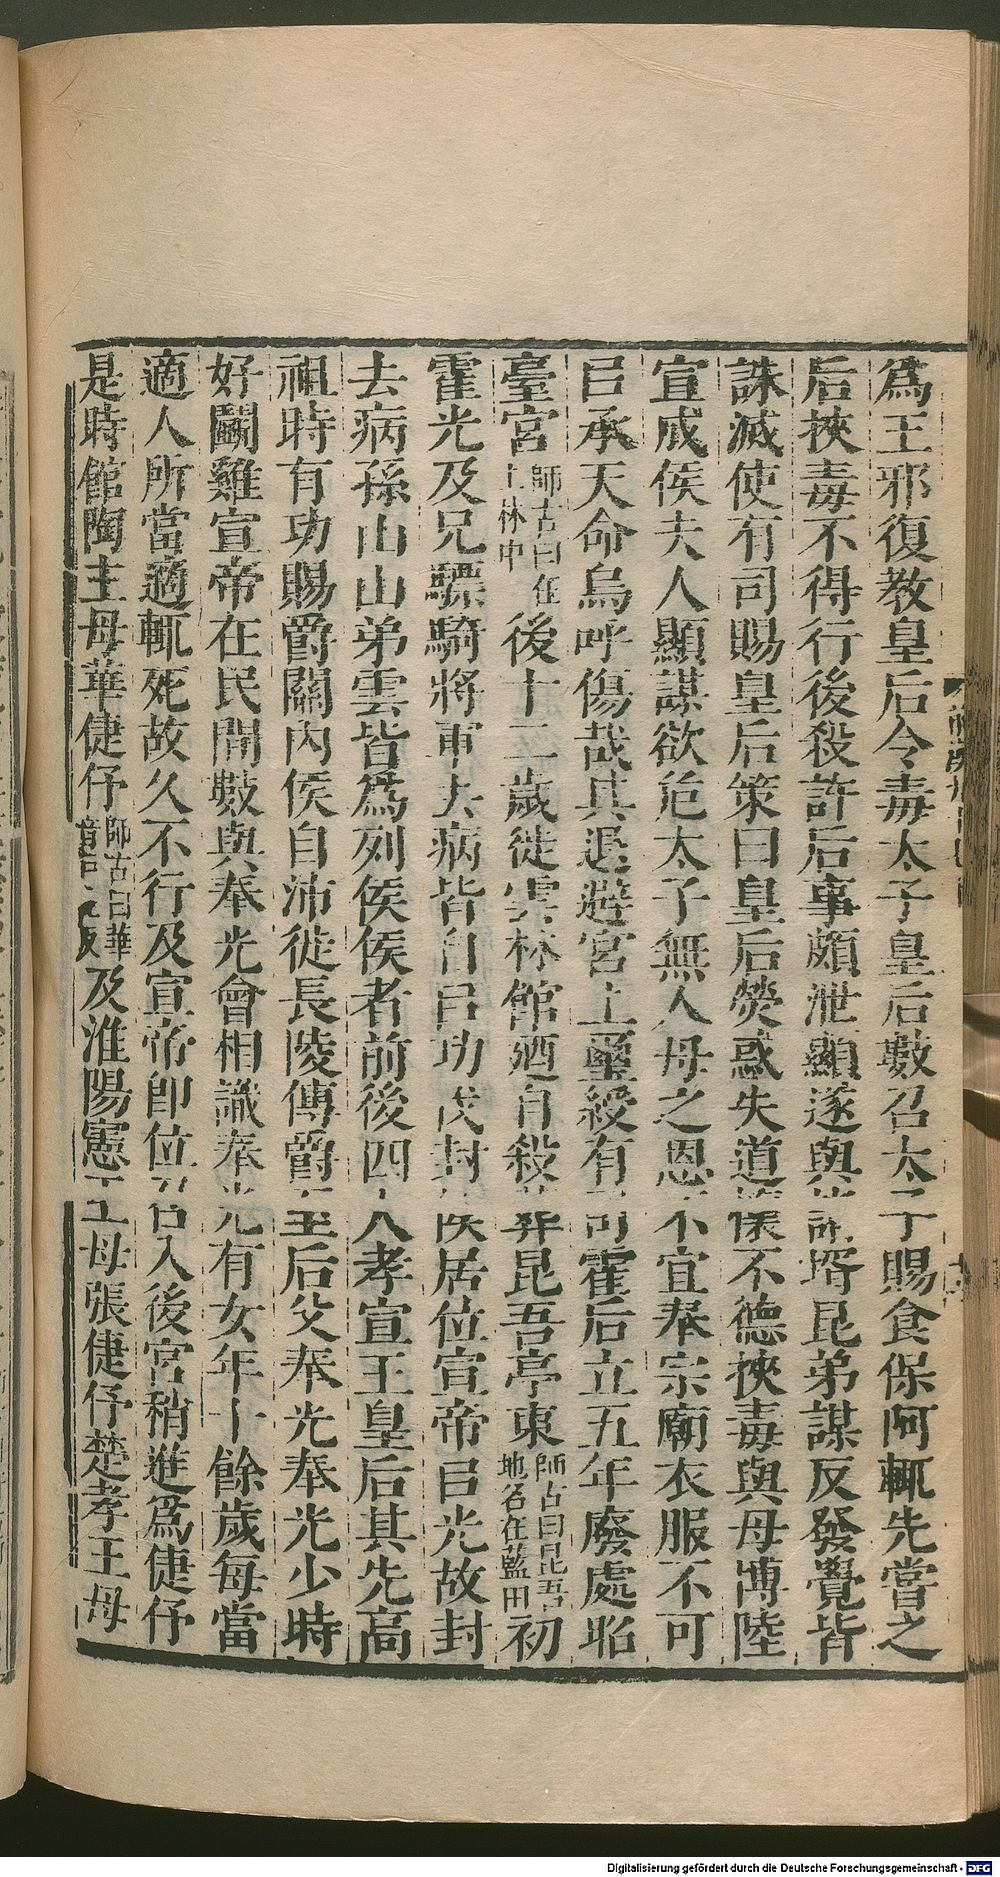 爲王邪復教皇后令毒太子皇后數召太子賜食保阿輒先嘗之
后挾毒不得行後殺許后事頗泄顯遂與諸壻昆弟謀反發覺皆
誅滅使有司賜皇后策曰皇后熒惑失道懷不德挾毒與母博陸
宣成侯夫人顯謀欲危太子無人母之恩不宜奉宗廟衣服不可
㠯承天命烏呼傷哉其退避宮上璽綬有司霍后立五年廢處昭
臺宮師古曰在上林中後十二歲徙雲林館廼自殺葬昆吾亭東師古曰昆吾地名在藍田初
霍光及兄驃騎將軍去病皆自㠯功伐封侯居位宣帝㠯光故封
去病孫山山弟雲皆爲列侯侯者前後四人孝宣王皇后其先高
祖時有功賜爵關內侯自沛徙長陵傳爵至后父奉光奉光少時
好鬭雞宣帝在民間數與奉光會相識奉光有女年十餘歲每當
適人所當適輒死故久不行及宣帝即位召入後宮稍進爲倢伃
是時館陶主母華倢伃師古曰華音戶之反及淮陽憲王母張倢伃楚孝王母
Digitalisierung gefördert durch die Deutsche Forschungsgemeinschaft - DFG